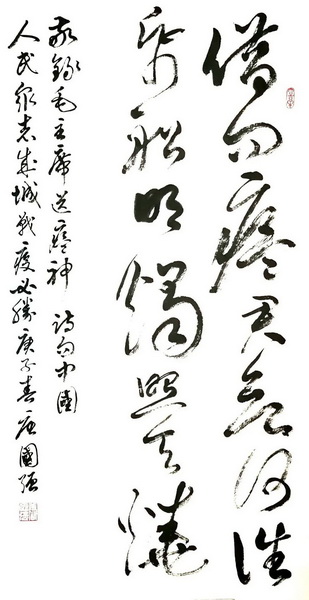 借问瘟君欲何往
纸船明燭照天燒
敬録毛主席送瘟神 诗句中国
人民众志成城战疫必勝庚子春國强